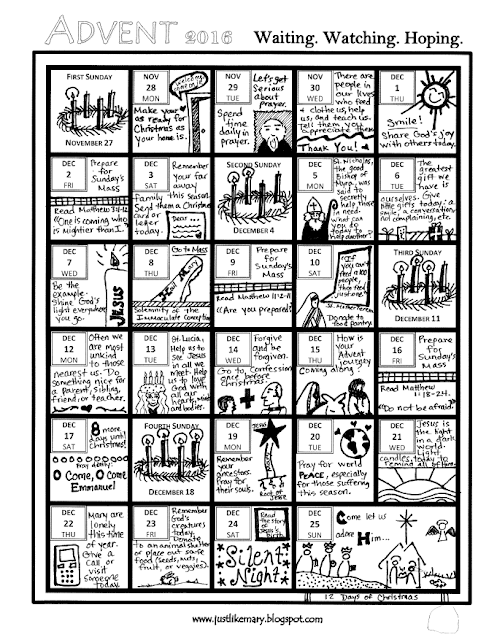 ADVENT 2016 Waiting. Watching. Hoping.
FIRST SUNDAY
NOVEMBER 27
NOV
28
MON
Make your
as ready for
Christmas as
your home is.
NOV
29
TUE
Let's get
serious
about
prayer.
Spend
time daily
in prayer.
NOV
30
WED
There are
people in
our lives
who feed
& clothe us, help
us, and teach us.
Tell them you
appreciate them.
Thank You!
DEC
1
THU
Smile!
Share God's joy
with others today.
DEC
2
FRI
Prepare
for
Sunday's
Mass
Read Matthew 3:1-12
"One is coming who
is mightier than I."
DEC
3
SAT
Remember
your far
away
family this season.
Send them a Christmas
card or
letter
today.
Dear
SECOND SUNDAY
DECEMBER 4
DEC
5
MON
St. Nicholas,
the good
Bishop of
Myra, was
said to
secretly
help those
in need.
What can
you do
today to
help another?
DEC
6
TUE
The
greatest
gift we
have is
ourselves. Give
little gifts today: a
smile, a conversation,
not complaining, etc.
DEC
7
WED
Be the
example.
Shine God's
light everywhere
you go.
JESUS
DEC
8
THU
Go to Mass
Hail Mary
Solemnity of the
Immaculate Conception
DEC
9
FRI
Prepare
for
Sunday's
Mass
Read Matthew 11:2-11
(Are you prepared?)
DEC
10
SAT
"If
you can't
feed a 100
people,
then feed
just one."
Donate to
food pantry.
THIRD SUNDAY
DECEMBER 11
DEC
12
MON
Often we
are most
unkind
to those
nearest us. Do
something nice for
a parent, sibling,
friend, or teacher.
DEC
13
TUE
St. Lucia,
Help us to
see Jesus
in all we
meet. Help
us to love
God with
all our
hearts, minds
and bodies.
DEC
14
WED
Forgive
and be
forgiven.
Go to Confession
once before
Christmas!
DEC
15
THU
How is
your
Advent
journey
coming along?
DEC
16
FRI
Prepare
for
Sunday's
Mass
Read Matthew
1:18-24.
"Do not be afraid."
DEC
17
SAT
8 more
days until
Christmas!
Pray daily:
O Come, O Come
Emmanuel!
FOURTH SUNDAY
DECEMBER 18
DEC
19
MON
Remember
your
ancestors.
Pray for
their souls.
Jesus
Root of
Jesse
DEC
20
TUE
Pray for world
PEACE, especially
for those suffering
this season.
DEC
21
WED
Jesus is
the light
in a dark
world.
Light
candles today to
remind all of Him.
DEC
22
THU
Many are
lonely
this time
of year.
Give a
call or
visit
someone
today.
DEC
23
FRI
Remember
God's
creatures
today.
Donate
to an animal shelter
or place out safe
food (seeds, nuts,
fruit, or veggies).
DEC
24
SAT
Read
the story
of
Jesus's
birth.
Silent
Night
DEC
25
SUN
Come let us
adore Him...
12 Days of Christmas
www.justlikemary.blogspot.com